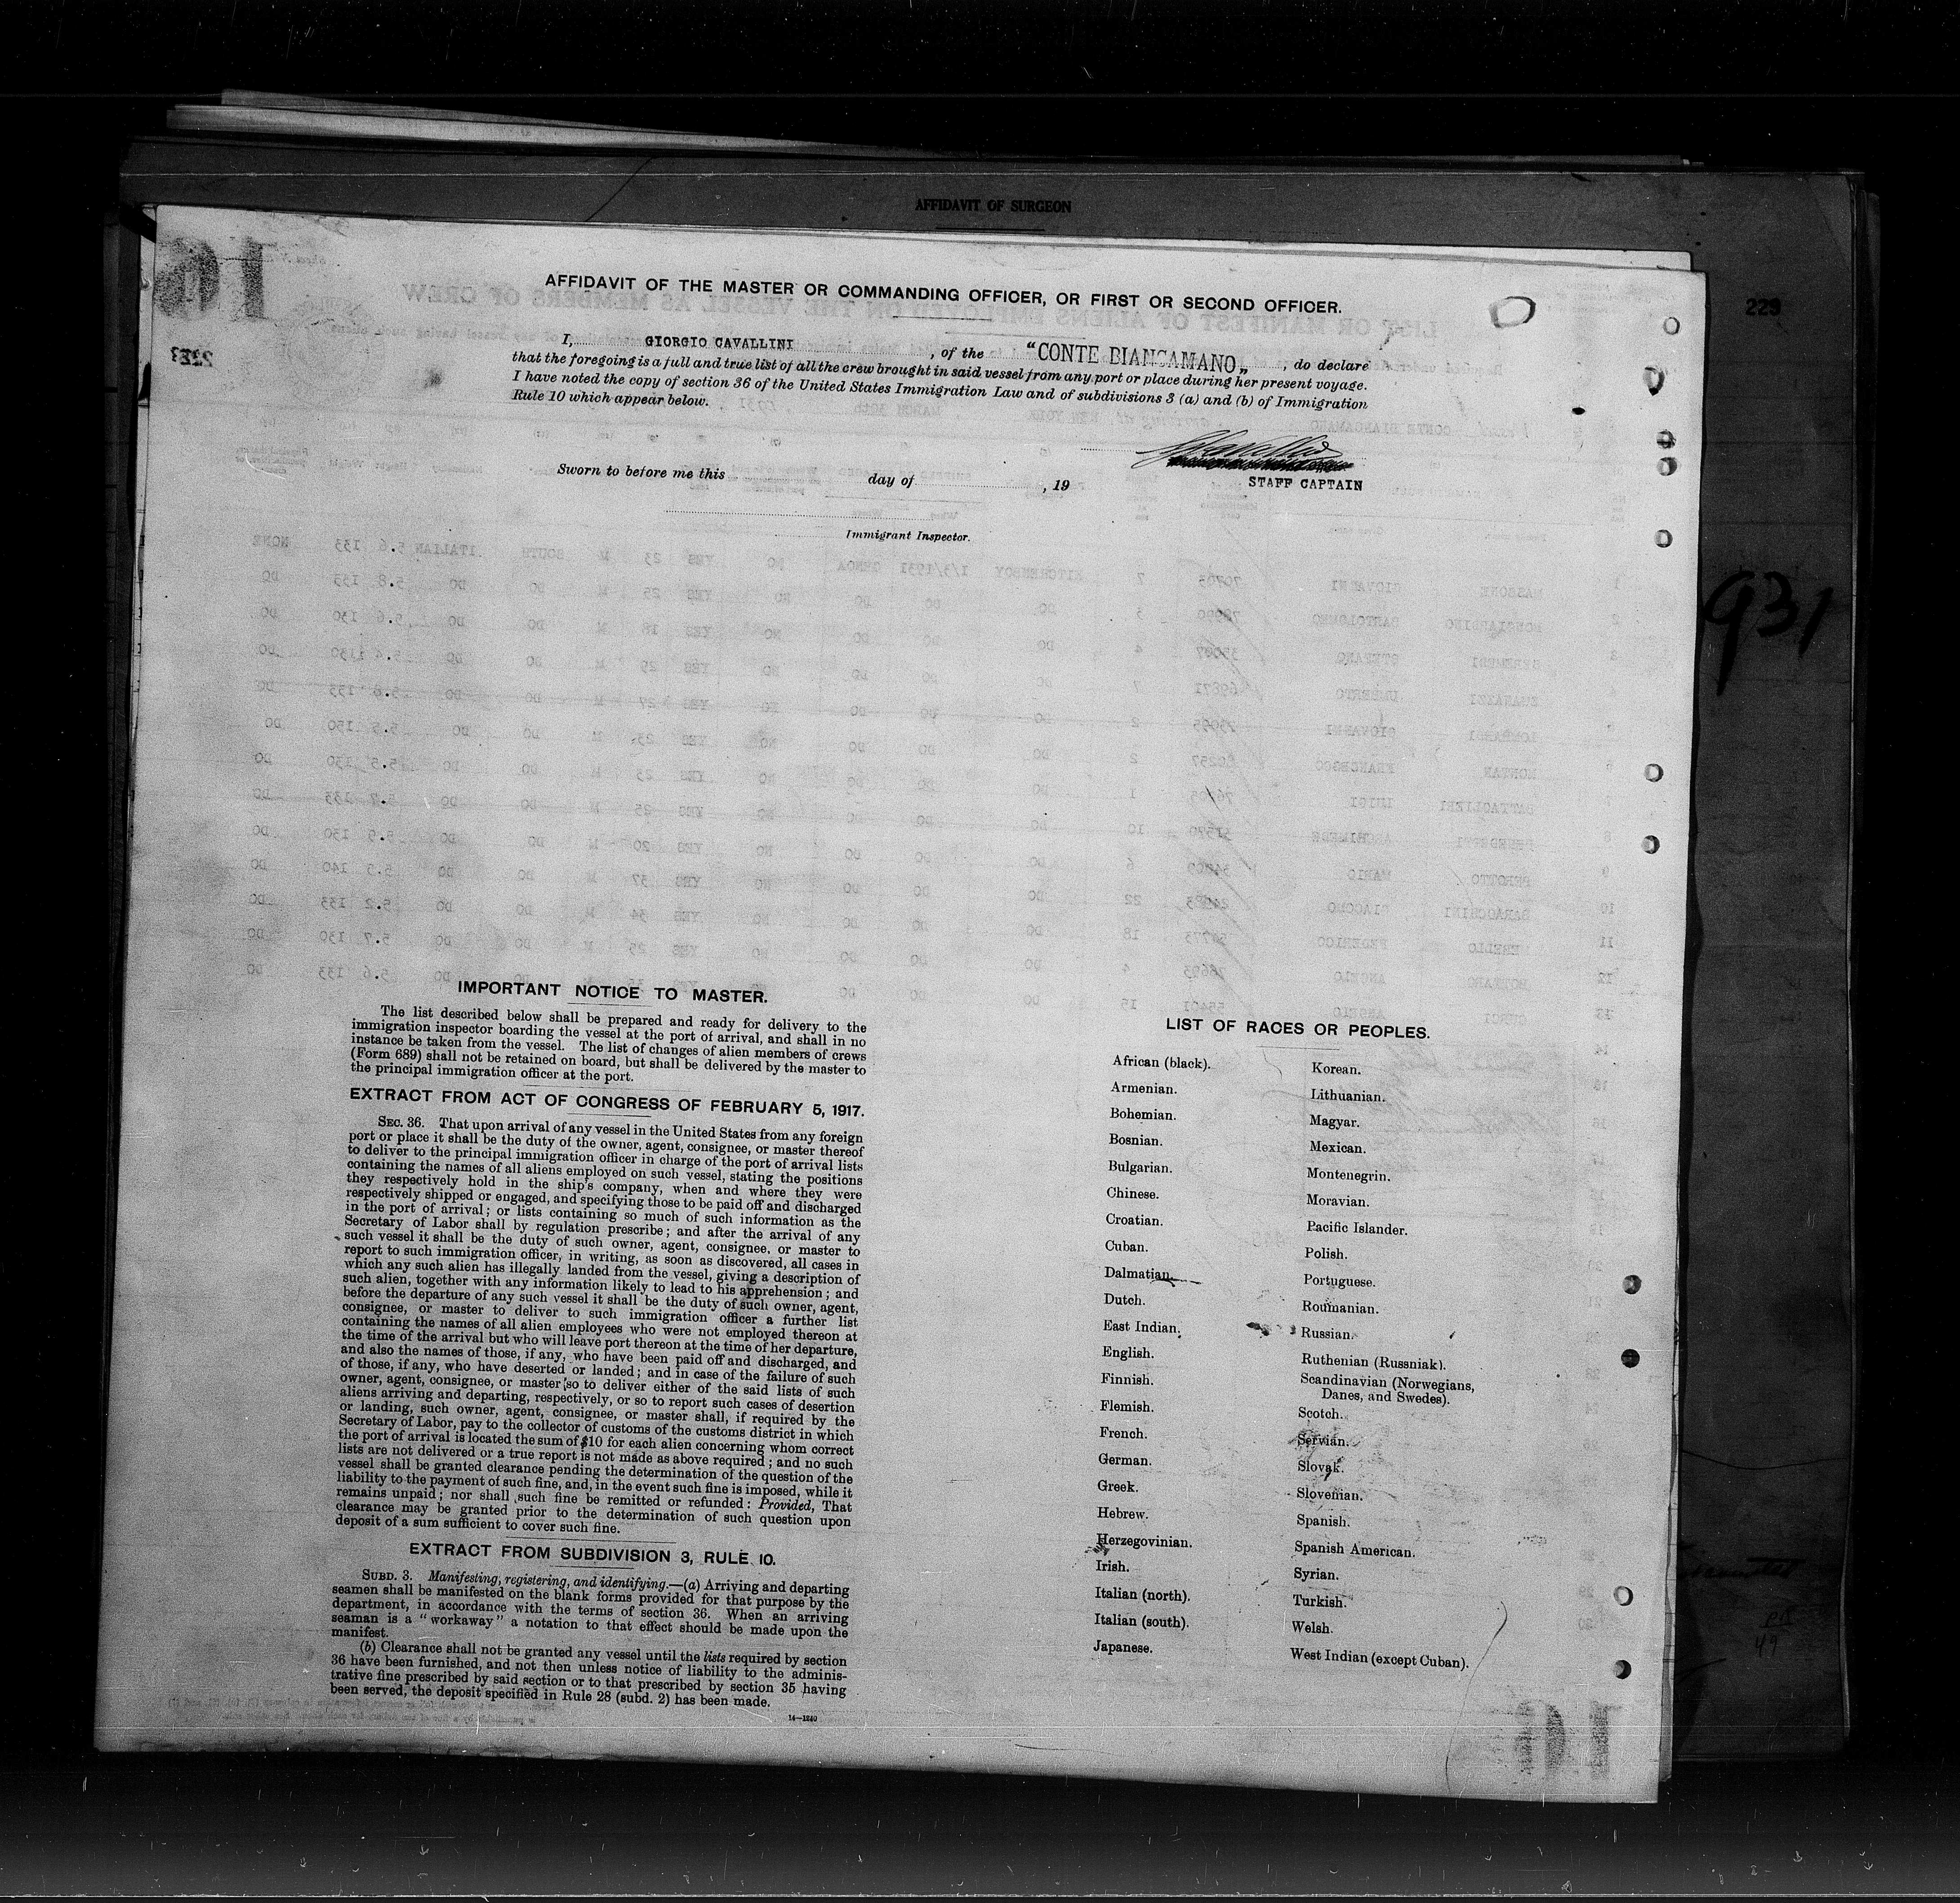 AFFIDAVIT OF SURGEON
AFFIDAVIT OF THE MASTER OR COMMANDING OFFICER, OR FIRST OR SECOND OFFICER.
229
I, GIORGIO CAVALLINI, of the "CONTE BIANCAMANO„, do declare
that the foregoing is a full and true list of all the crew brought in said vessel from any port or place during her present voyage.
I have noted the copy of section 36 of the United States Immigration Law and of subdivisions 3 (a) and (b) of Immigration
Rule 10 which appear below.
Sworn to before me this day of , 19
STAFF CAPTAIN
Immigrant Inspector.
931
IMPORTANT NOTICE TO MASTER.
The list described below shall be prepared and ready for delivery to the
immigration inspector boarding the vessel at the port of arrival, and shall in no
instance be taken from the vessel. The list of changes of alien members of crews
(Form 689) shall not be retained on board, but shall be delivered by the master to
the principal immigration officer at the port.
EXTRACT FROM ACT OF CONGRESS OF FEBRUARY 5, 1917.
SEC. 36. That upon arrival of any vessel in the United States from any foreign
port or place it shall be the duty of the owner, agent, consignee, or master thereof
to deliver to the principal immigration officer in charge of the port of arrival lists
containing the names of all aliens employed on such vessel, stating the positions
they respectively hold in the ship's company, when and where they were
respectively shipped or engaged, and specifying those to be paid off and discharged
in the port of arrival; or lists containing so much of such information as the
Secretary of Labor shall by regulation prescribe; and after the arrival of any
such vessel it shall be the duty of such owner, agent, consignee, or master to
report to such immigration officer, in writing, as soon as discovered, all cases in
which any such alien has illegally landed from the vessel, giving a description of
such alien, together with any information likely to lead to his apprehension; and
before the departure of any such vessel it shall be the duty of such owner, agent,
consignee, or master to deliver to such immigration officer a further list
containing the names of all alien employees who were not employed thereon at
the time of the arrival but who will leave port thereon at the time of her departure,
and also the names of those, if any, who have been paid off and discharged, and
of those, if any, who have deserted or landed; and in case of the failure of such
owner, agent, consignee, or master so to deliver either of the said lists of such
aliens arriving and departing, respectively, or so to report such cases of desertion
or landing, such owner, agent, consignee, or master shall, if required by the
Secretary of Labor, pay to the collector of customs of the customs district in which
the port of arrival is located the sum of $10 for each alien concerning whom correct
lists are not delivered or a true report is not made as above required; and no such
vessel shall be granted clearance pending the determination of the question of the
liability to the payment of such fine, and, in the event such fine is imposed, while it
remains unpaid; nor shall such fine be remitted or refunded: Provided, That
clearance may be granted prior to the determination of such question upon
deposit of a sum sufficient to cover such fine.
EXTRACT FROM SUBDIVISION 3, RULE 10.
SUBD. 3. Manifesting, registering, and identifying.—(a) Arriving and departing
seamen shall be manifested on the blank forms provided for that purpose by the
department, in accordance with the terms of section 36. When an arriving
seaman is a "workaway" a notation to that effect should be made upon the
manifest.
(b) Clearance shall not be granted any vessel until the lists required by section
36 have been furnished, and not then unless notice of liability to the adminis-
trative fine prescribed by said section or to that prescribed by section 35 having
been served, the deposit specified in Rule 28 (subd. 2) has been made.
14—1240
LIST OF RACES OR PEOPLES.
African (black).
Armenian.
Bohemian.
Bosnian.
Bulgarian.
Chinese.
Croatian.
Cuban.
Dalmatian.
Dutch.
East Indian.
English.
Finnish.
Flemish.
French.
German.
Greek.
Hebrew.
Herzegovinian.
Irish.
Italian (north).
Italian (south).
Japanese.
Korean.
Lithuanian.
Magyar.
Mexican.
Montenegrin.
Moravian.
Pacific Islander.
Polish.
Portuguese.
Roumanian.
Russian.
Ruthenian (Russniak).
Scandinavian (Norwegians,
Danes, and Swedes).
Scotch.
Servian.
Slovak.
Slovenian.
Spanish.
Spanish American.
Syrian.
Turkish.
Welsh.
West Indian (except Cuban).
49